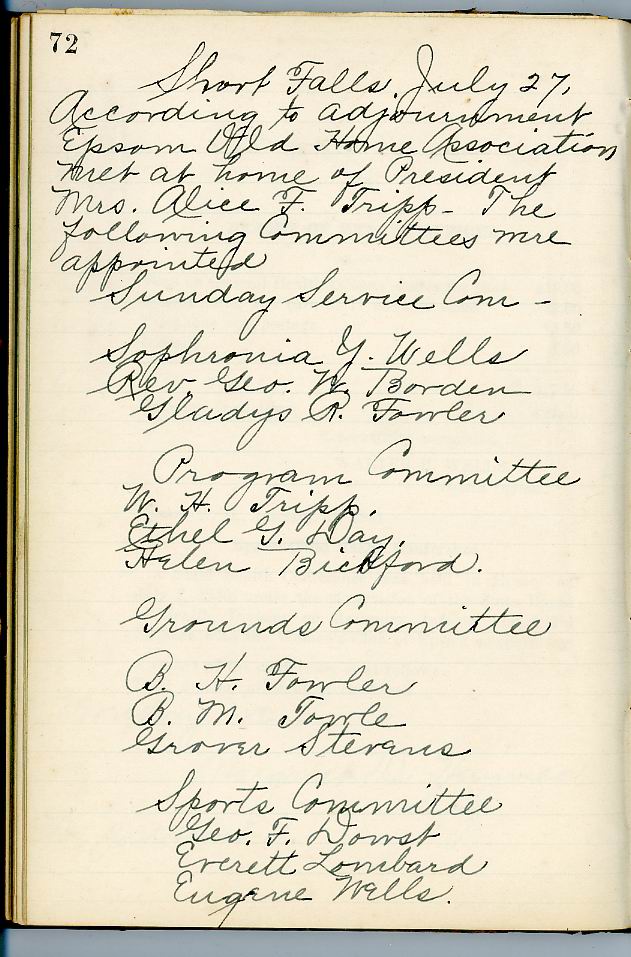 72
Short Falls, July 27,
According to adjournment
Epsom Old Home Association
met at home of President
Mrs. Alice F. Tripp - The
following Committees were
appointed
Sunday Service Com -
Sophronia Y. Wells
Rev. Geo. W. Borden
Gladys R. Fowler
Program Committee
W. H. Tripp.
Ethel G. Day.
Helen Bickford.
Grounds Committee
B. H. Fowler
B. M. Towle
Grover Stevens
Sports Committee
Geo. F. Dowst
Everett Lombard
Eugene Wells.